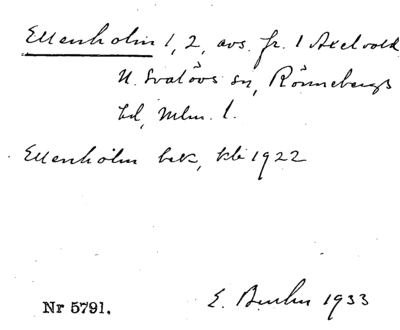 Ellenholm 1, 2, avs. fr. 1 Axelvold,
N. Svalövs sn, Rönnebergs
hd, Mlm. l.
Ellenholm bek, kb 1922
Nr 5791.
E. 1933